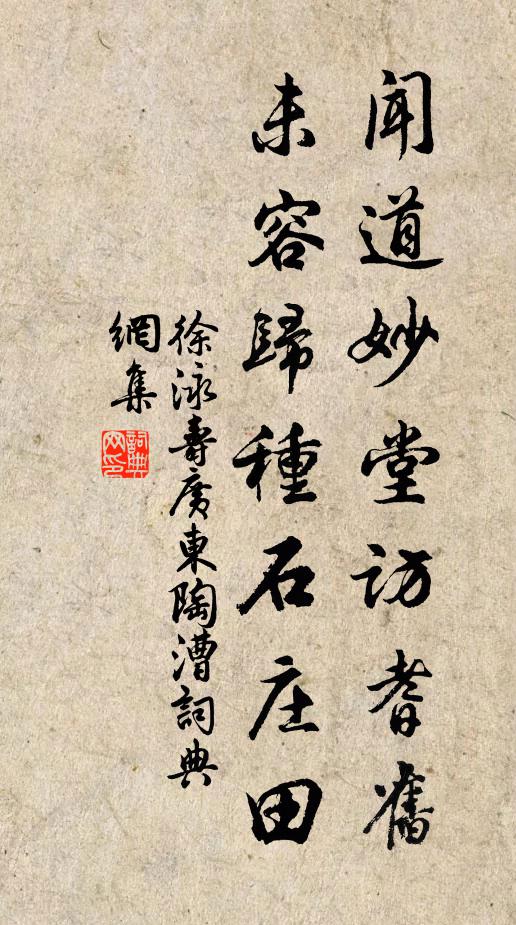 闻道妙堂訪耆舊
未容歸種石庄田
徐泳壽廣東陶漕詞典
網集
詞典
网印